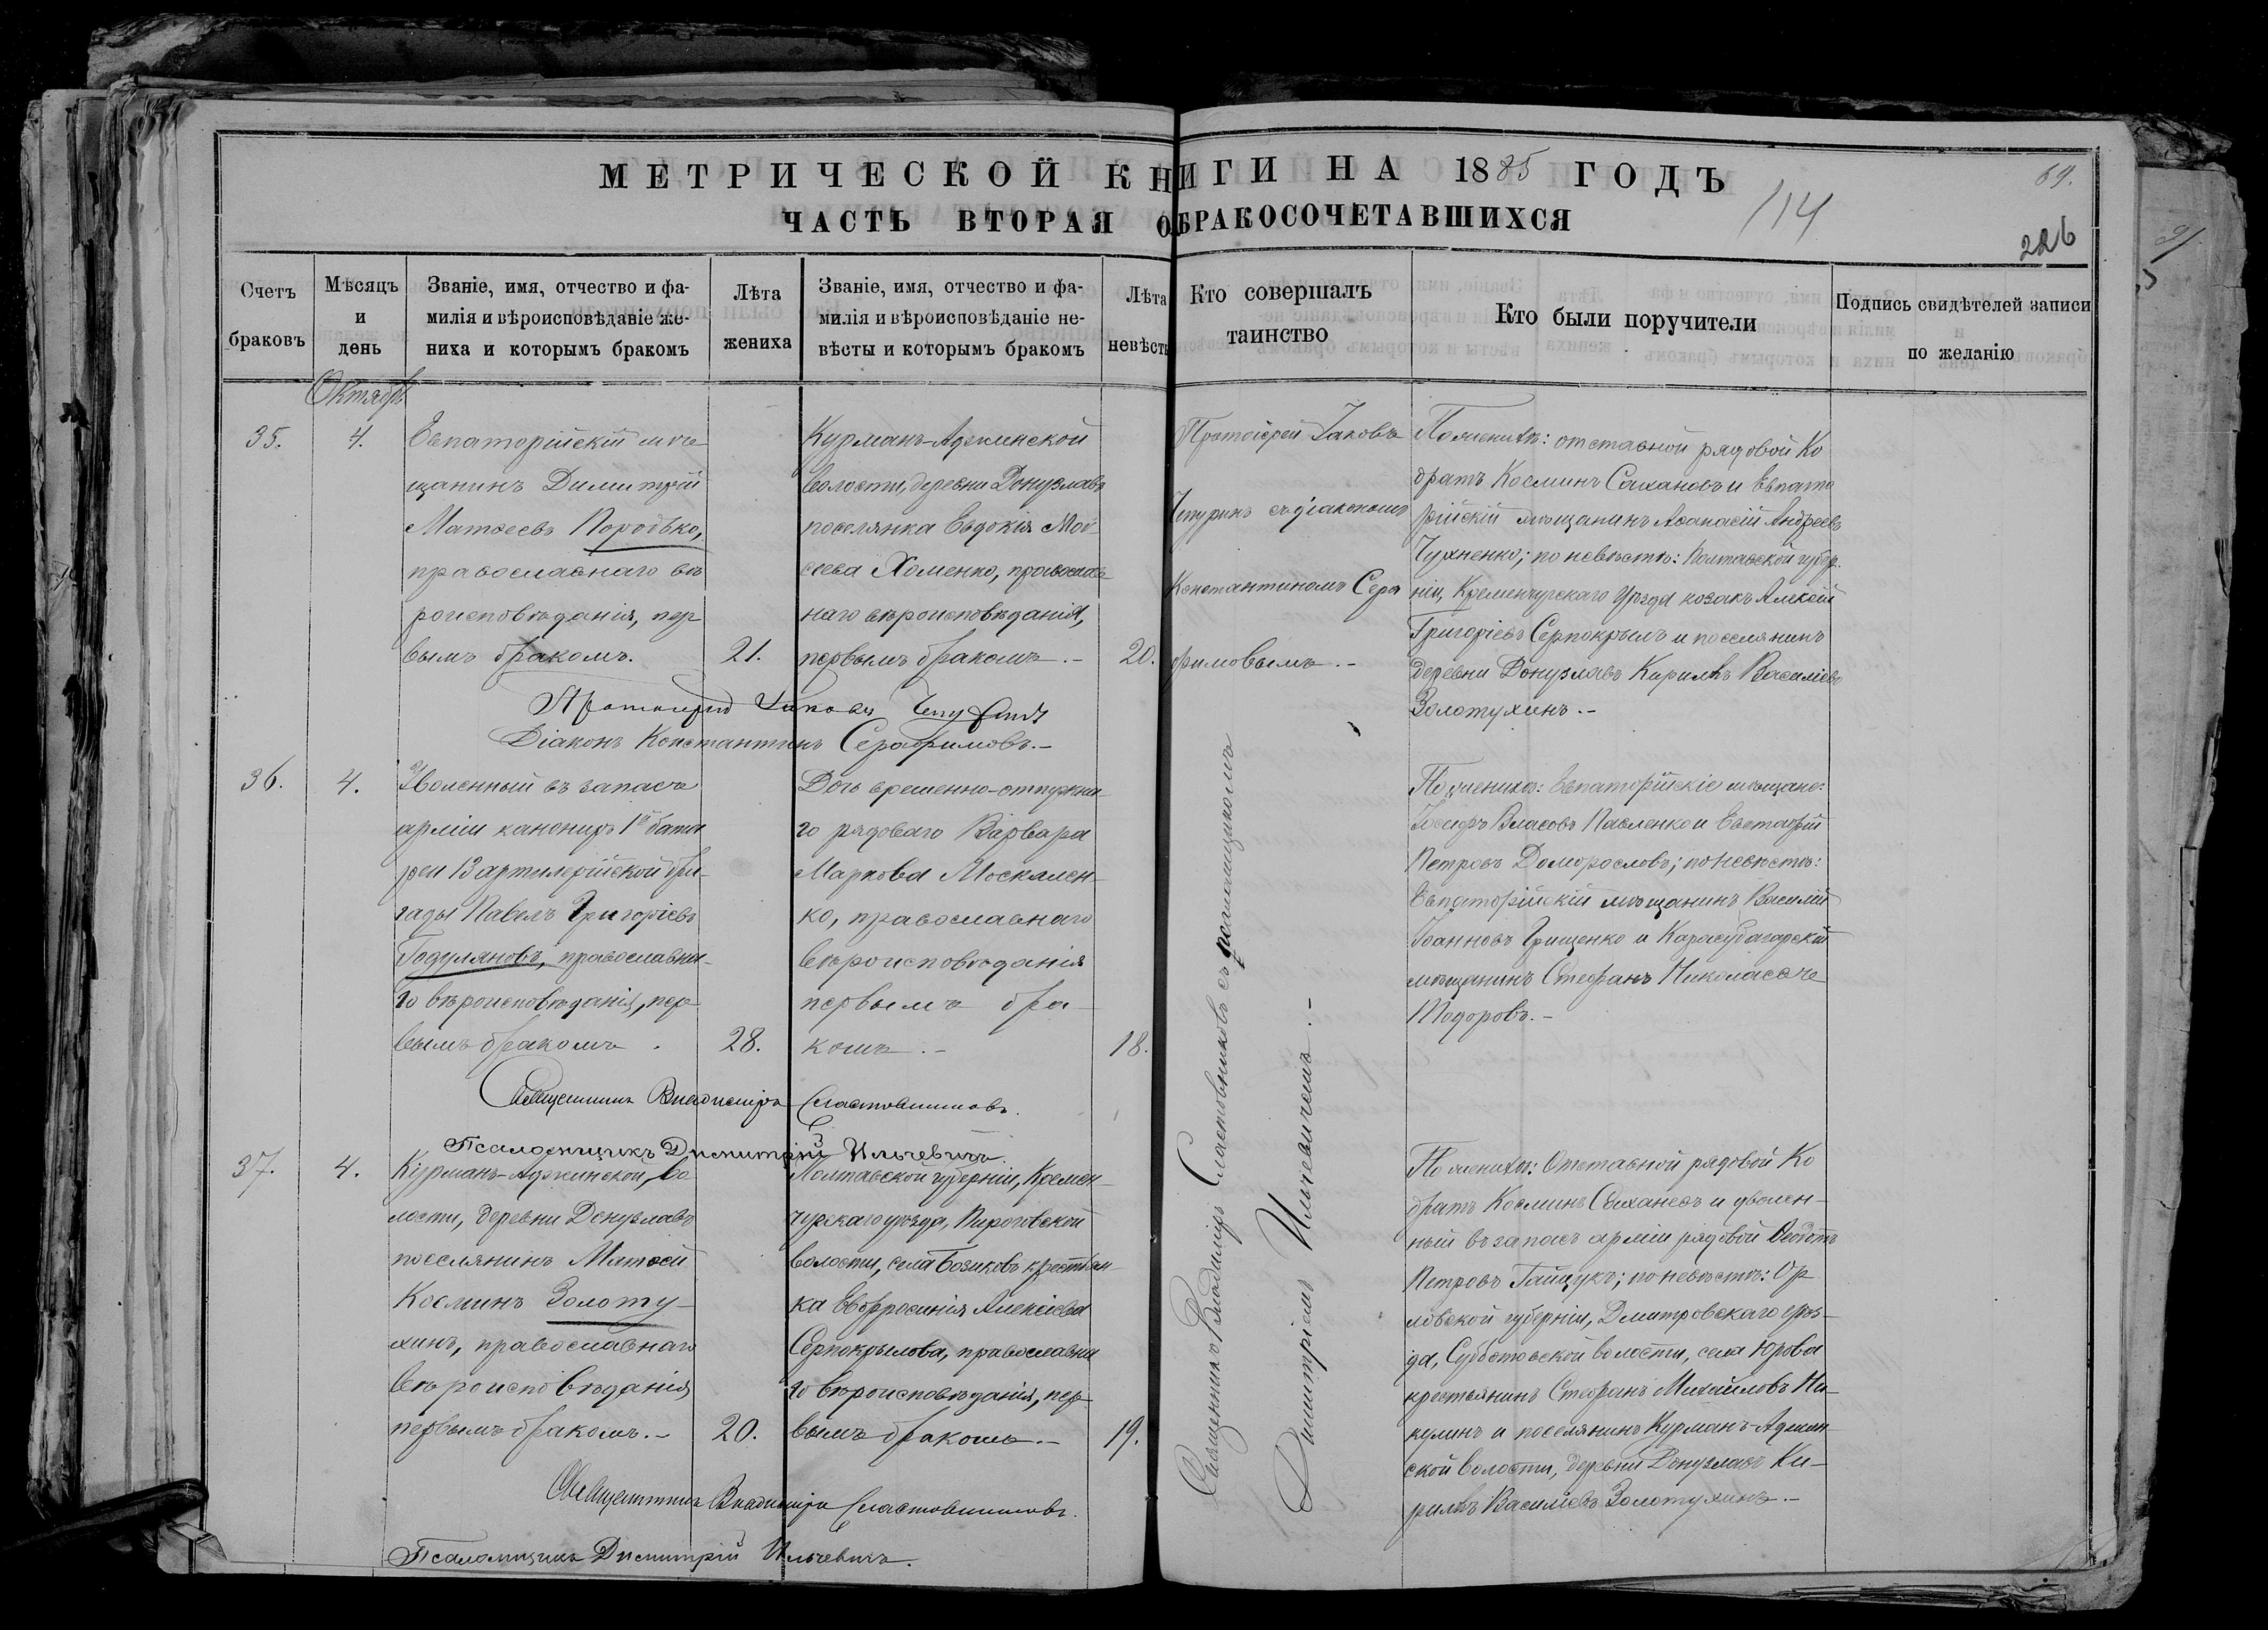 МЕТРИЧЕСКОЙ КНИГИ НА 1885 ГОДЪ
69.
114
ЧАСТЬ ВТОРАЯ О БРАКОСОЧЕТАВШИХСЯ
226
Счетъ браковъ
Мѣсяцъ и день
Званіе, имя, отчество и фа-
милія и вѣроисповѣданіе же-
ниха и которымъ бракомъ
Лѣта жениха
Званіе, имя, отчество и фа-
милія и вѣроисповѣданіе не-
вѣсты и которымъ бракомъ
Лѣта невѣсты
Кто совершалъ
таинство
Кто были поручители
Подпись свидѣтелей записи
по желанію
Октябрь
35.
4.
Евпаторійскій мѣ
щанинъ Димитрій
Матѳеевъ Породько,
православнаго вѣ
роисповѣданія, пер
вымъ бракомъ.
21.
Курманъ-Аджинской
волости, деревни Донузлавъ
поселянка Евдокія Мои
сеева Хоменко, православ
наго вѣроисповѣданія,
первымъ бракомъ.-
20.
Протоіерей Іаковъ
Чепуринъ съ діакономъ
Константиномъ Сера
фимовымъ.-
По женихѣ: отставной рядовой Ко
дратъ Косминъ Сахановъ и Евпато
рійскій мѣщанинъ Аѳанасій Андреевъ
Чухненко; по невѣстѣ: Полтавской губер.
ніи, Кременчугскаго уѣзда козакъ Алексій
Григоріевъ Серпокрылъ и поселянинъ
деревни Донузлавъ Кириллъ Василіевъ
Золотухинъ.-
Протоіерей Іаковъ Чепуринъ
Діаконъ Константинъ Серафимовъ.-
36.
4.
Уволенный въ запасъ
арміи канониръ 1й бата
реи 13 артилерійской бри-
гады Павелъ Григоріевъ
Годуляновъ, православна-
го вѣроисповѣданія, пер
вымъ бракомъ.
28.
Дочь временно-отпускна
го рядоваго Варвара
Маркова Москален-
ко, православнаго
вѣроисповѣданія
первымъ бра-
комъ.-
18.
Священникъ Владиміръ Сластовниковъ съ псаломщикомъ
Димитріемъ Ильчевичемъ.-
По женихѣ: Евпаторійскіе мѣщане:
Іосифъ Власовъ Павленко и Евстафій
Петровъ Доморословъ; по невѣстѣ:
Евпаторійскій мѣщанинъ Василій
Іоанновъ Грищенко и Карасубазарскій
мѣщанинъ Стефанъ Николаевъ
Тодоровъ.-
Священникъ Владиміръ Сластовниковъ.
Псаломщикъ Димитрій Ильчевичъ.
37.
4.
Курманъ-Аджинской, во
лости, деревни Донузлавъ
поселянинъ Матѳей
Косминъ Золоту-
хинъ, православнаго
вѣроисповѣданія
первымъ бракомъ.-
20.
Полтавской губерніи, Кремен-
чугскаго уѣзда, Пироговской
волости, села Бозиковъ крестьян-
ка Евфросинія Алексіева
Серпокрылова, православна
го вѣроисповѣданія, пер
вымъ бракомъ.-
19.
По женихѣ: Отставной рядовой Ко
дратъ Косминъ Сахановъ и уволен-
ный въ запасъ арміи рядовой Ѳеодотъ
Петровъ Гайцукъ; по невѣстѣ: Ор
ловской губерніи, Дмитровскаго уѣз-
да, Субботовской волости, села Юрова
крестьянинъ Стефанъ Михайловъ Ни-
кулинъ и поселянинъ Курманъ-Аджин
ской волости, деревни Донузлавъ Ки-
риллъ Василіевъ Золотухинъ.-
Священникъ Владиміръ Сластовниковъ.
Псаломщикъ Димитрій Ильчевичъ.